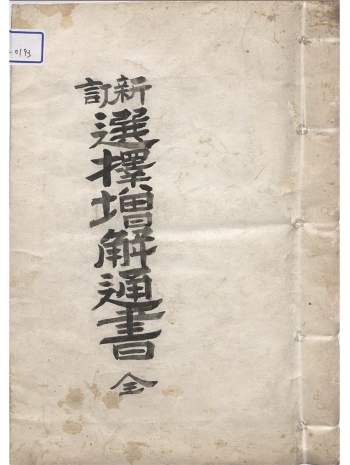 新訂
選擇增解通書 全